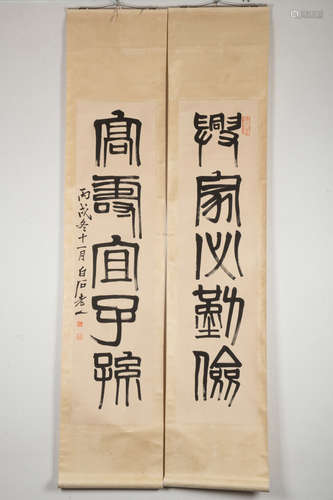 興家必勤儉
高壽宜子孫
丙戌冬十一月白石老人